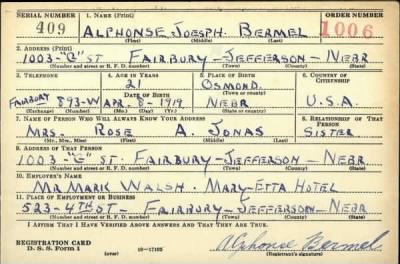 SERIAL NUMBER 1. NAME (Print) ORDER NUMBER
409 ALPHONSE JOESPH. BERMEL 1006
(First) (Middle) (Last)
2. ADDRESS (Print)
1003-"C" ST FAIRBURY-JEFFERSON-NEBR
(Number and street or R. F. D. number) (Town) (County) (State)
3. TELEPHONE 4. AGE IN YEARS 5. PLACE OF BIRTH 6. COUNTRY OF CITIZENSHIP
21 OSMOND.
DATE OF BIRTH (Town or county)
FAIRBURY 893-W APR. 8-1919 NEBR U.S.A.
(Exchange) (No.) (Mo.) (Day) (Yr.) (State or country)
7. NAME OF PERSON WHO WILL ALWAYS KNOW YOUR ADDRESS 8. RELATIONSHIP OF THAT PERSON
MRS. ROSE A. JONAS SISTER
(Mr., Mrs., Miss) (First) (Middle) (Last)
9. ADDRESS OF THAT PERSON
1003-"C" ST. FAIRBURY-JEFFERSON-NEBR
(Number and street or R. F. D. number) (Town) (County) (State)
10. EMPLOYER'S NAME
MR MARK WALSH. MARY-ETTA HOTEL
11. PLACE OF EMPLOYMENT OR BUSINESS
523-4TH ST- FAIRBURY-JEFFERSON-NEBR
(Number and street or R. F. D. number) (Town) (County) (State)
I AFFIRM THAT I HAVE VERIFIED ABOVE ANSWERS AND THAT THEY ARE TRUE.
REGISTRATION CARD
D. S. S. Form 1 (over) 16-17105 Alphonse Bermel
(Registrant's signature)